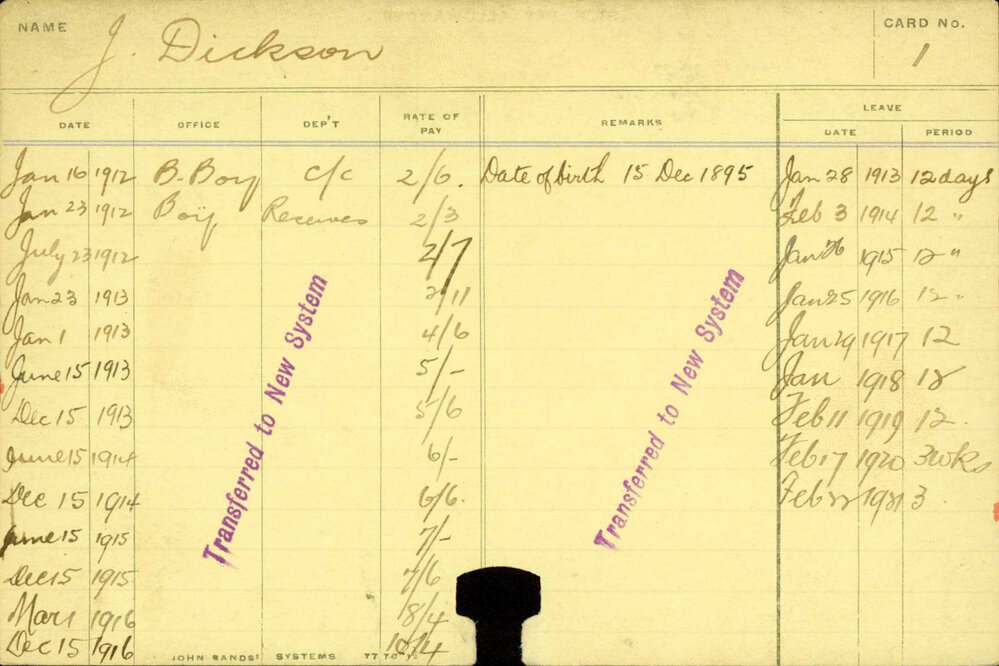 NAME J. Dickson CARD No. 1
DATE OFFICE DEP'T RATE OF PAY REMARKS LEAVE DATE PERIOD
Jan 16 1912 B. Boy C/C 2/6. Date of birth 15 Dec 1895 Jan 28 1913 12 days
Jan 23 1912 Boy Reserves 2/3 Feb 3 1914 12 "
July 23 1912 2/7 Jan 26 1915 12 "
Jan 23 1913 2/11 Jan 25 1916 12 "
Jan 1 1913 4/6 Jan 29 1917 12
June 15 1913 5/- Jan 1918 12
Dec 15 1913 5/6 Feb 11 1919 12.
June 15 1914 6/- Feb 17 1920 3 wks
Dec 15 1914 6/6. Feb 1921 3
June 15 1915 7/-
Dec 15 1915 7/6
Mar 1 1916 8/4
Dec 15 1916 10/4
Transferred to New System
Transferred to New System
JOHN SANDS' SYSTEMS